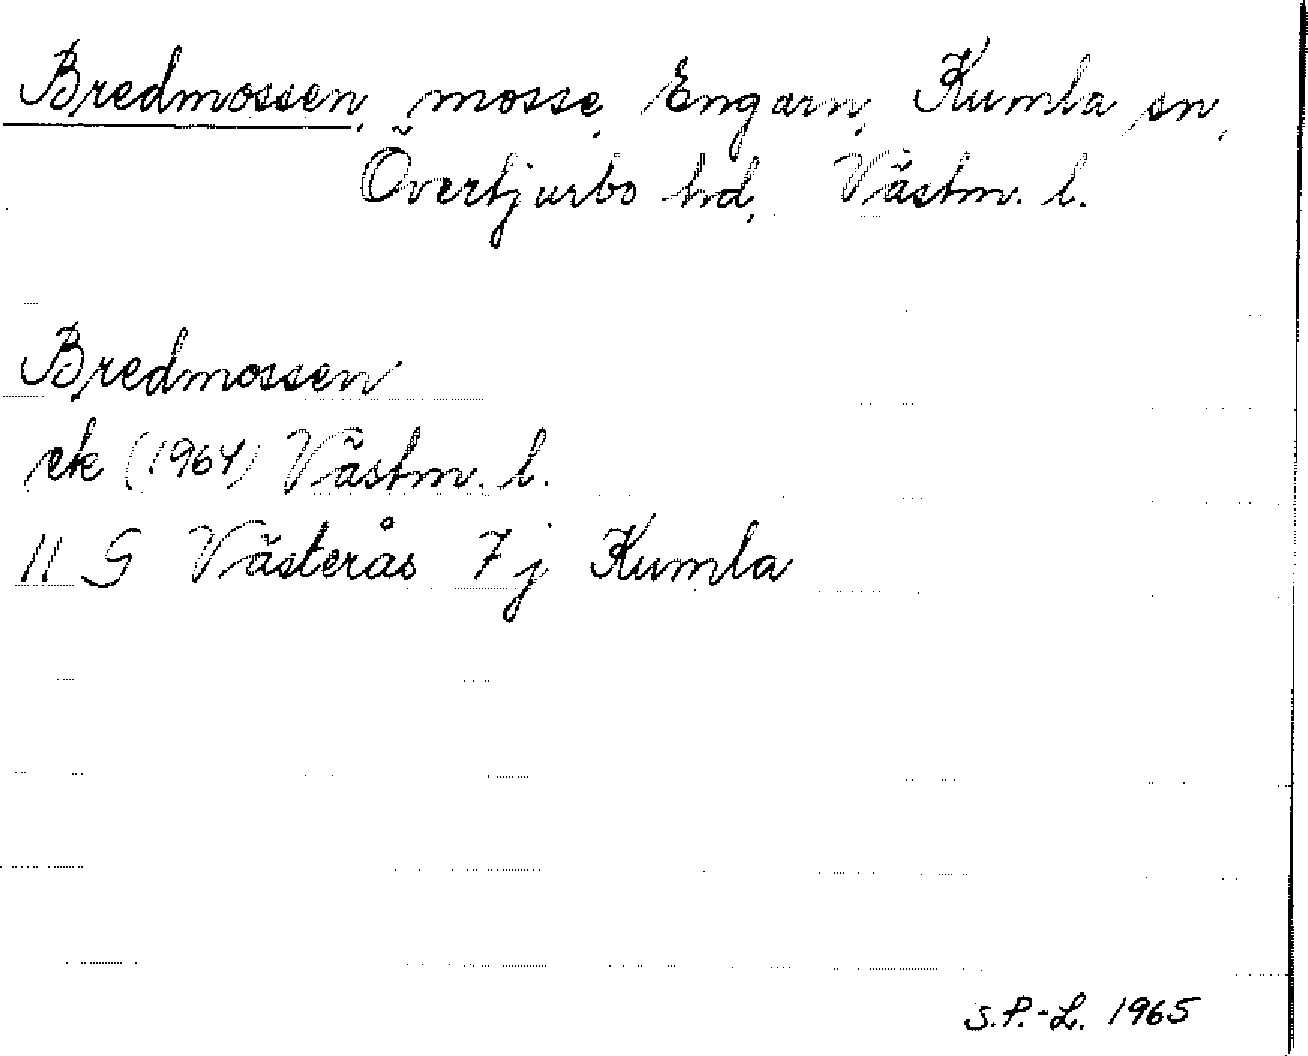 Bredmossen, mosse, Engarn, Kumla sn,
Övertjurbo hd, Västm. l.
Bredmossen
ek (1964) Västm. l.
11 G Västerås 7 j Kumla
S.P.-L. 1965